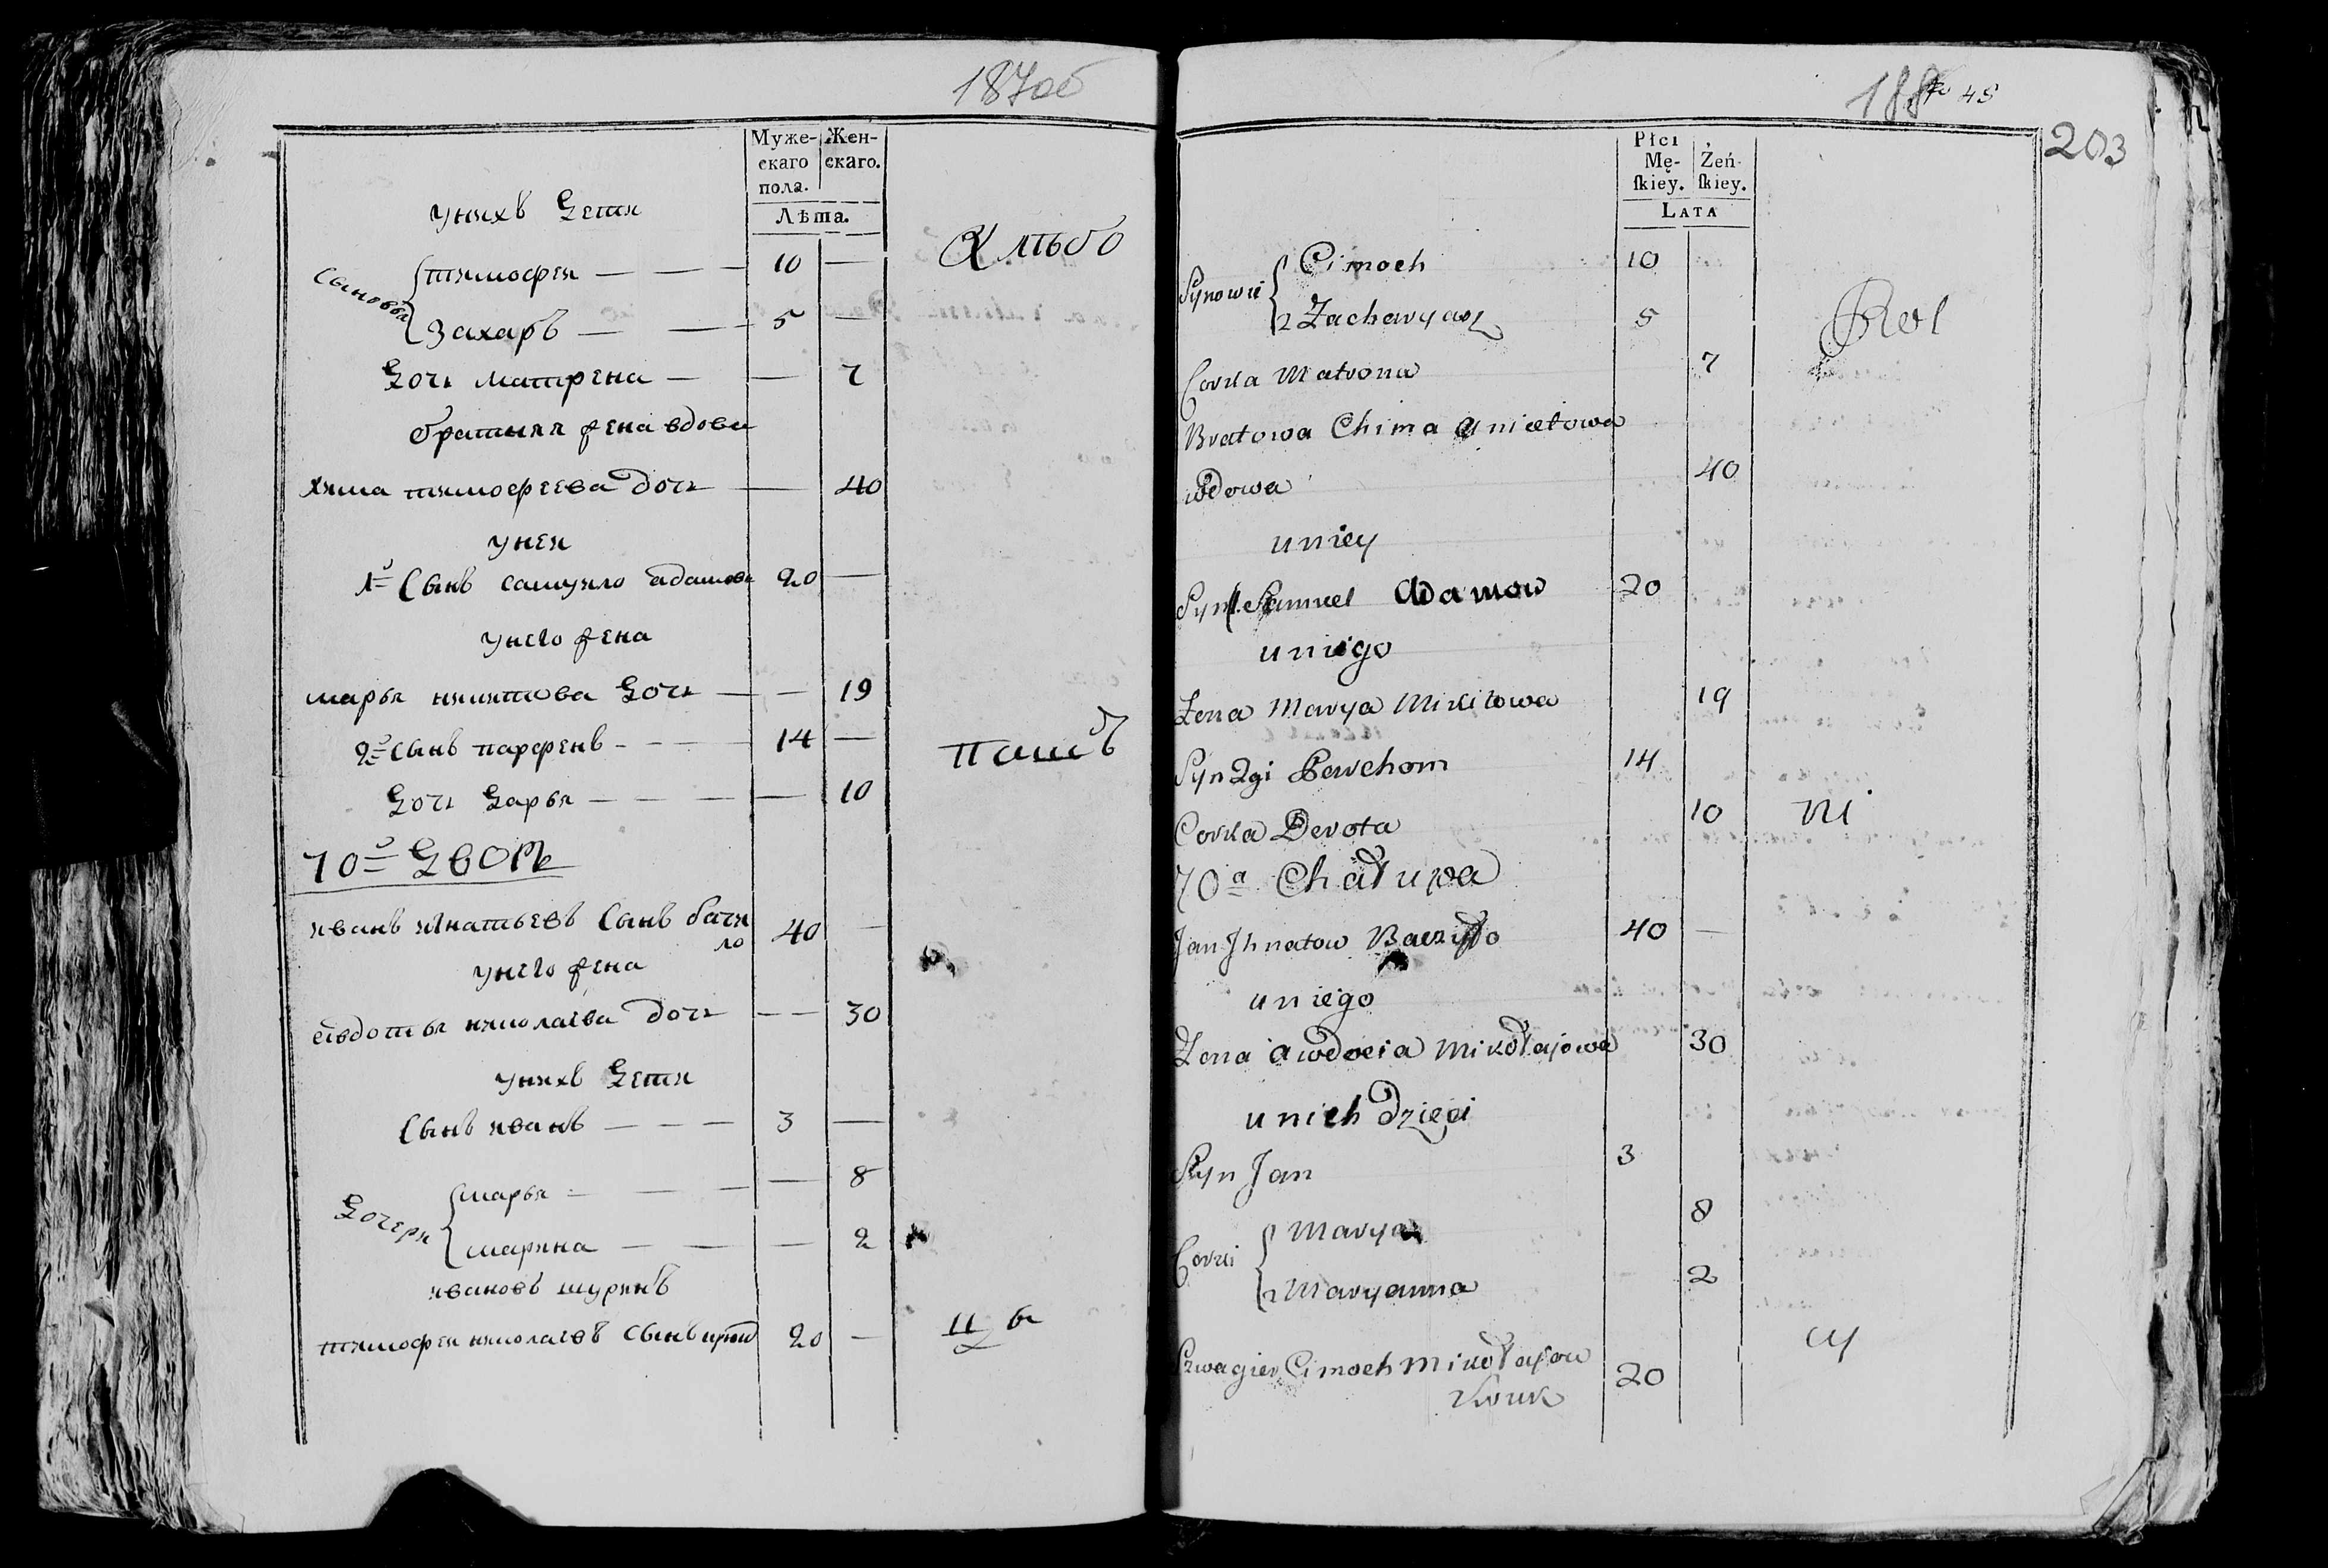 187об
Муже-
скаго
пола.
Жен-
скаго.
Лѣта.
у нихъ Дети
Сыновья
тимофеи — — — 10 —
Захаръ — — 5 —
Дочь матрена — — 7
братняя жена вдова
хима тимофеева дочь — — 40
у неи
1й Сынъ самуило адамовъ 20 —
у него жена
марья никитова Дочь — — 19
2й сынъ парфенъ - — — 14 —
Дочь Дарья — — — — 10
70й ДВОРЪ
иванъ игнатьевъ Сынъ бачи
ло 40 —
у него жена
евдотья николаева дочь — — 30
у нихъ Дети
Сынъ иванъ — — — 3 —
Дочери
марья — — — — 8
марина — — — 2
ивановъ шуринъ
тимофеи николаевъ сынъ 20 —
Хлѣбо
188 45
203
Płci
Mę-
ſkiey.
Żeń-
ſkiey.
LATA
Synowie
Cimoch 10
2 Zacharyasz 5
Corka Matrona 7
Bratowa Chima Anietowa
wdowa 40
u niey
Syn 1. Samuel Adamow 20
u niego
Zona Marya Mikitowa 19
Syn 2gi Parchom 14
Corka Dorota 10
70a Chałupa
Jan Jhnatow Baczyło 40 —
u niego
Zona Awdocia Mikołajowa 30
u nich Dzieci
Syn Jan 3
Corki
Marya 8
2 Maryanna 2
Szwagier Cimoch Mikołajow
Kruk 20
Rol